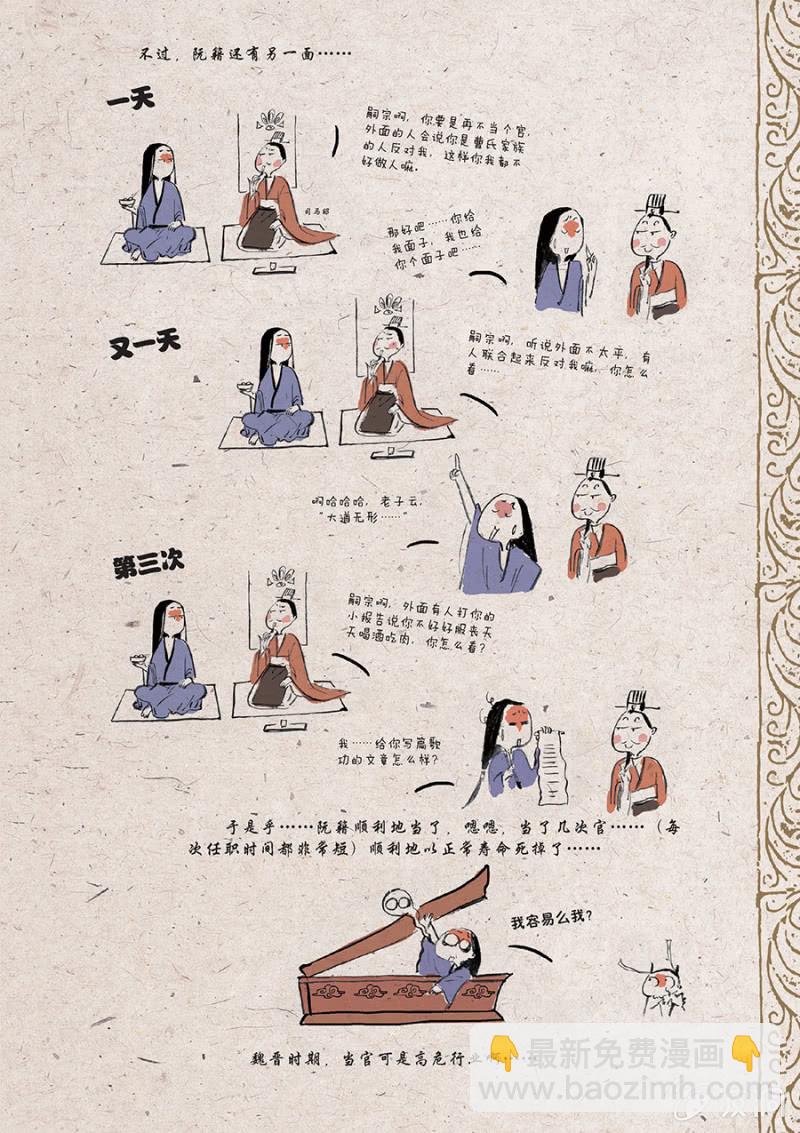 不过，阮籍还有另一面……
一天
嗣宗啊，你要是再不当个官，
外面的人会说你是曹氏家族
的人反对我，这样你我都不
好做人嘛。
司马昭
那好吧……你给
我面子，我也给
你个面子吧……
又一天
嗣宗啊，听说外面不太平，有
人联合起来反对我嘛，你怎么
看……
啊哈哈哈，老子云，
“大道无形……”
第三次
嗣宗啊，外面有人打你的
小报告说你不好好服丧天
天喝酒吃肉，你怎么看？
我……给你写篇歌
功的文章怎么样？
于是乎……阮籍顺利地当了，嗯嗯，当了几次官……（每
次任职时间都非常短）顺利地以正常寿命死掉了……
我容易么我？
魏晋时期，当官可是高危行业啊……
最新免费漫画
www.baozimh.com